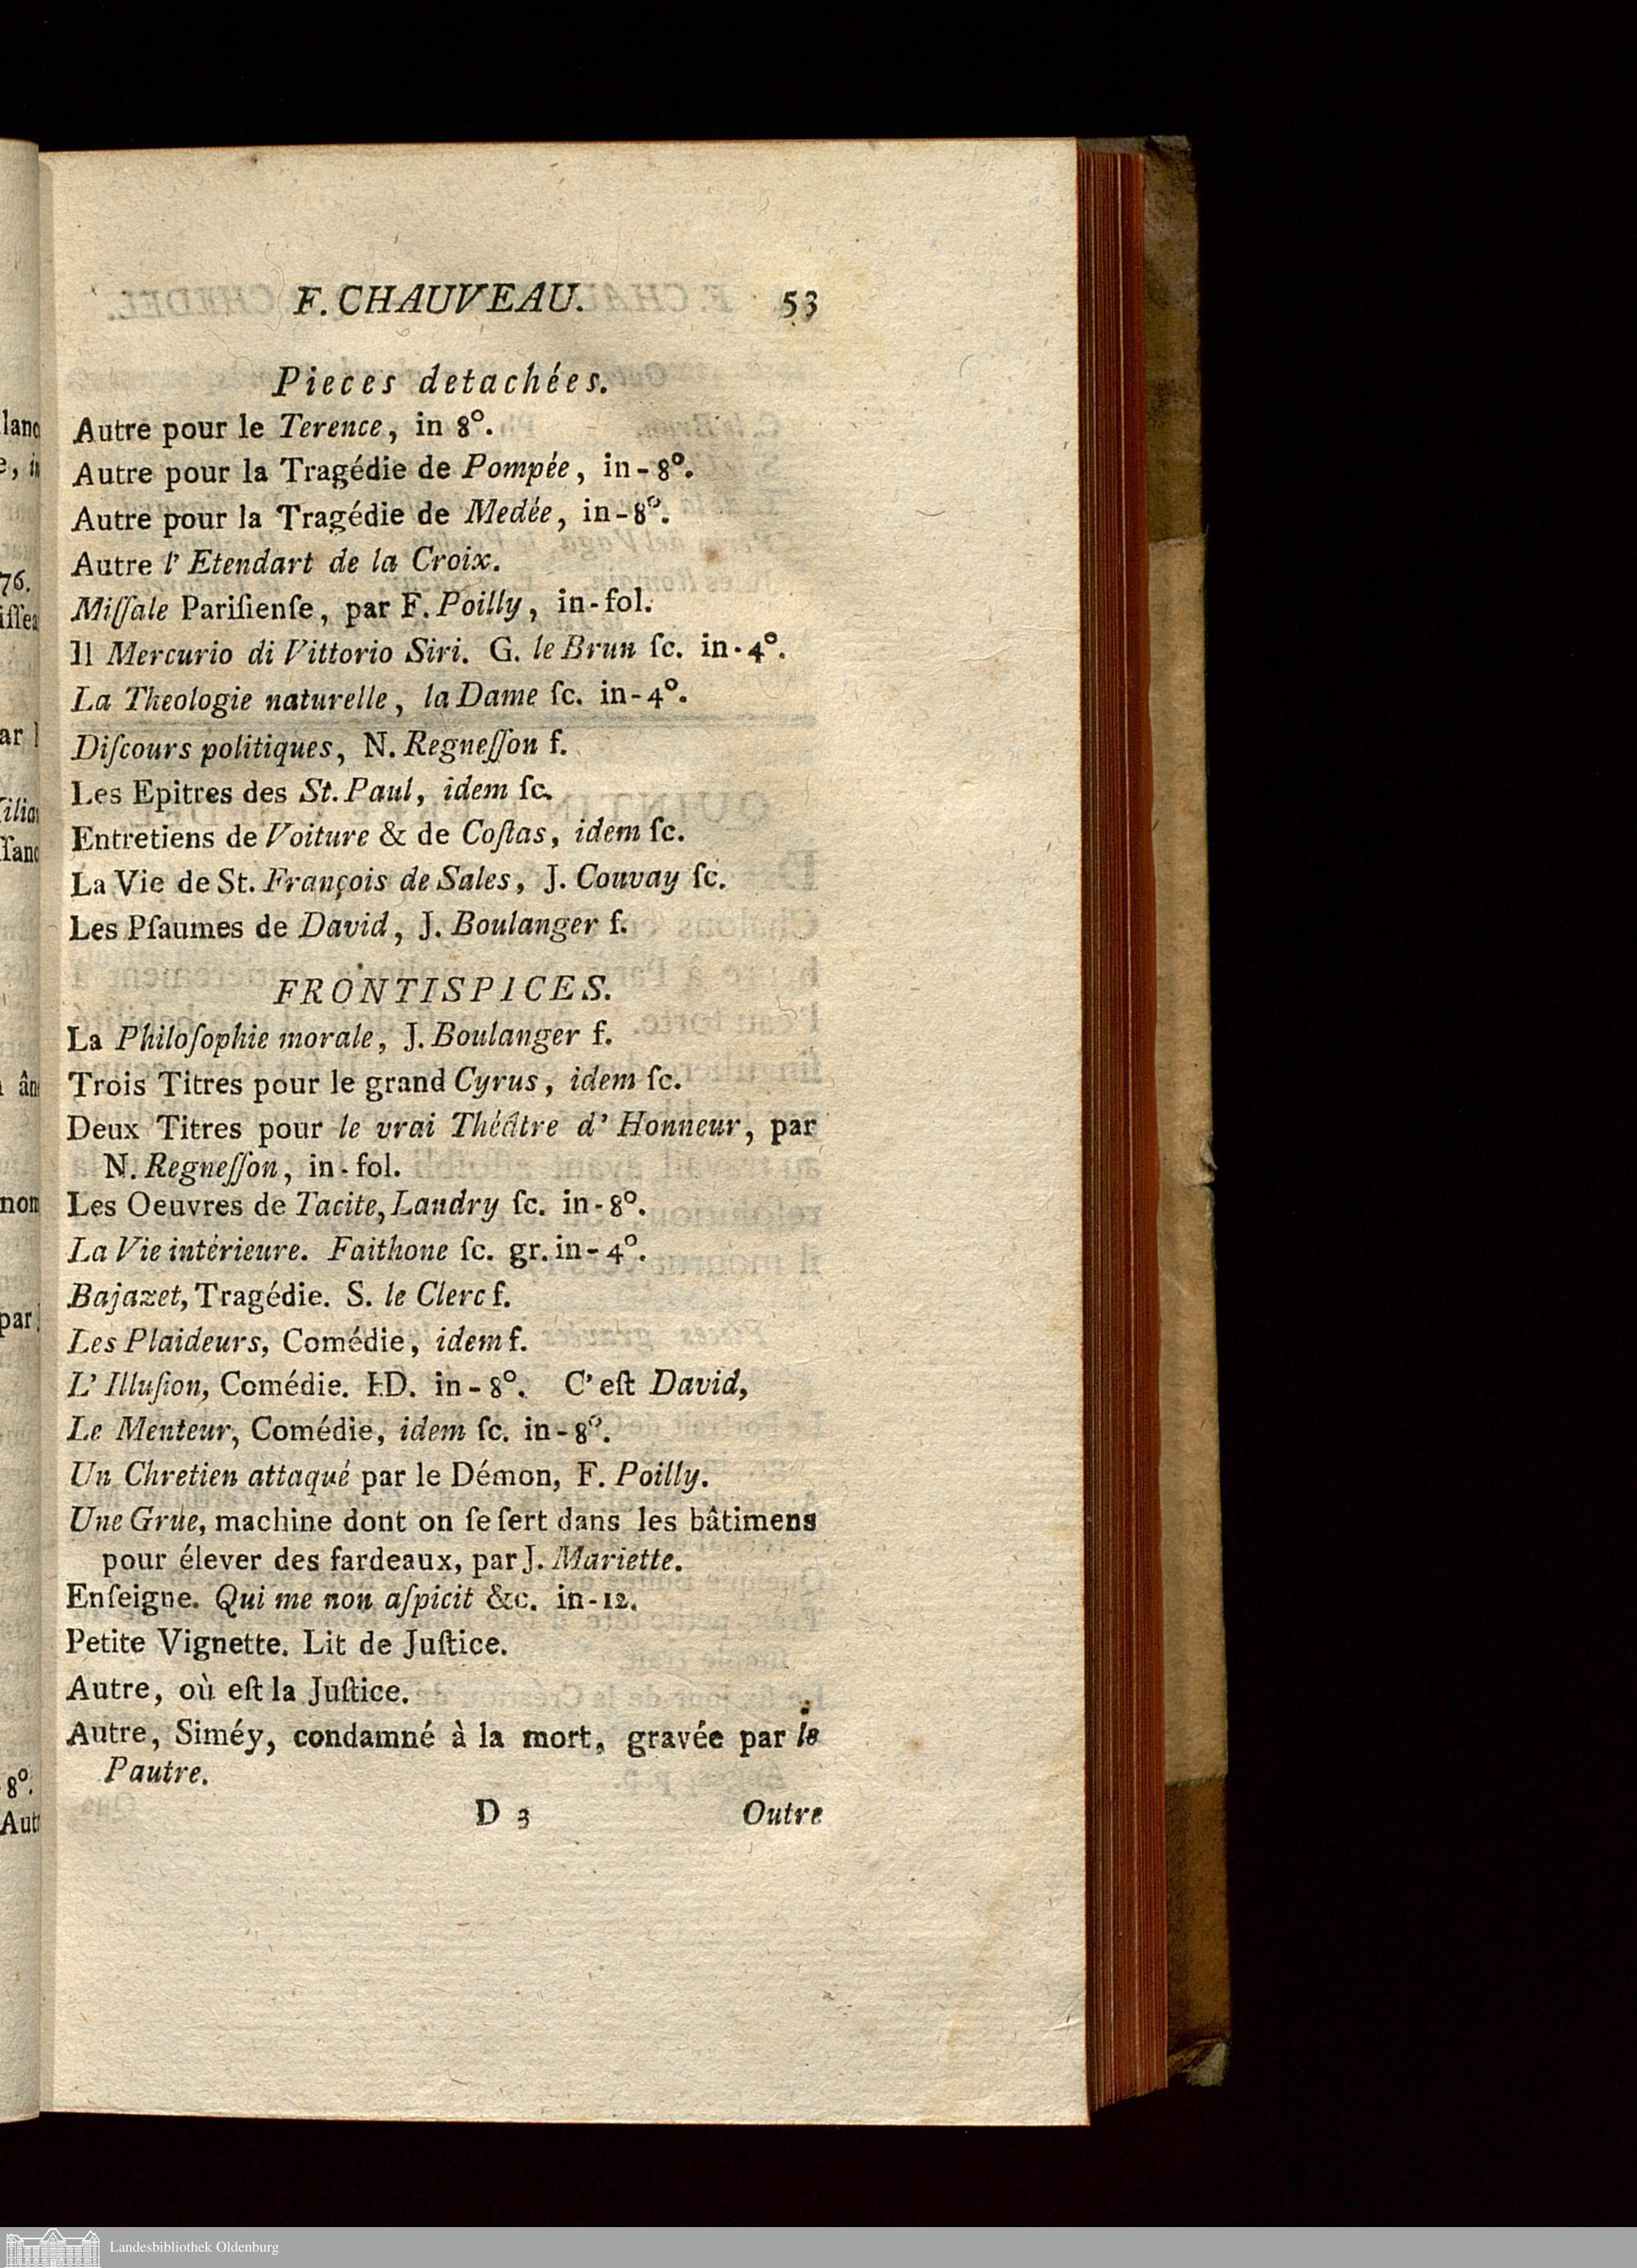 F. CHAUVEAU. 53
Pieces detachées.
Autre pour le Terence, in 8°.
Autre pour la Tragédie de Pompée, in-8°.
Autre pour la Tragédie de Medée, in-8°.
Autre l' Etendart de la Croix.
Miſſale Pariſienſe, par F. Poilly, in-fol.
Il Mercurio di Vittorio Siri. G. le Brun ſc. in-4°.
La Theologie naturelle, la Dame ſc. in-4°.
Diſcours politiques, N. Regneſſon f.
Les Epitres des St. Paul, idem ſc.
Entretiens de Voiture & de Coſtas, idem ſc.
La Vie de St. François de Sales, J. Couvay ſc.
Les Pſaumes de David, J. Boulanger f.
FRONTISPICES.
La Philoſophie morale, J. Boulanger f.
Trois Titres pour le grand Cyrus, idem ſc.
Deux Titres pour le vrai Théâtre d' Honneur, par
N. Regneſſon, in-fol.
Les Oeuvres de Tacite, Landry ſc. in-8°.
La Vie intérieure. Faithone ſc. gr. in-4°.
Bajazet, Tragédie. S. le Clerc f.
Les Plaideurs, Comédie, idem f.
L' Illuſion, Comédie. I-D. in-8°. C' eſt David,
Le Menteur, Comédie, idem ſc. in-8°.
Un Chretien attaqué par le Démon, F. Poilly.
Une Grúe, machine dont on ſe ſert dans les bâtimens
pour élever des fardeaux, par J. Mariette.
Enſeigne. Qui me non aſpicit &c. in-12.
Petite Vignette. Lit de Juſtice.
Autre, où eſt la Juſtice.
Autre, Siméy, condamné à la mort, gravée par le
Pautre.
D 3 Outre
Landesbibliothek Oldenburg